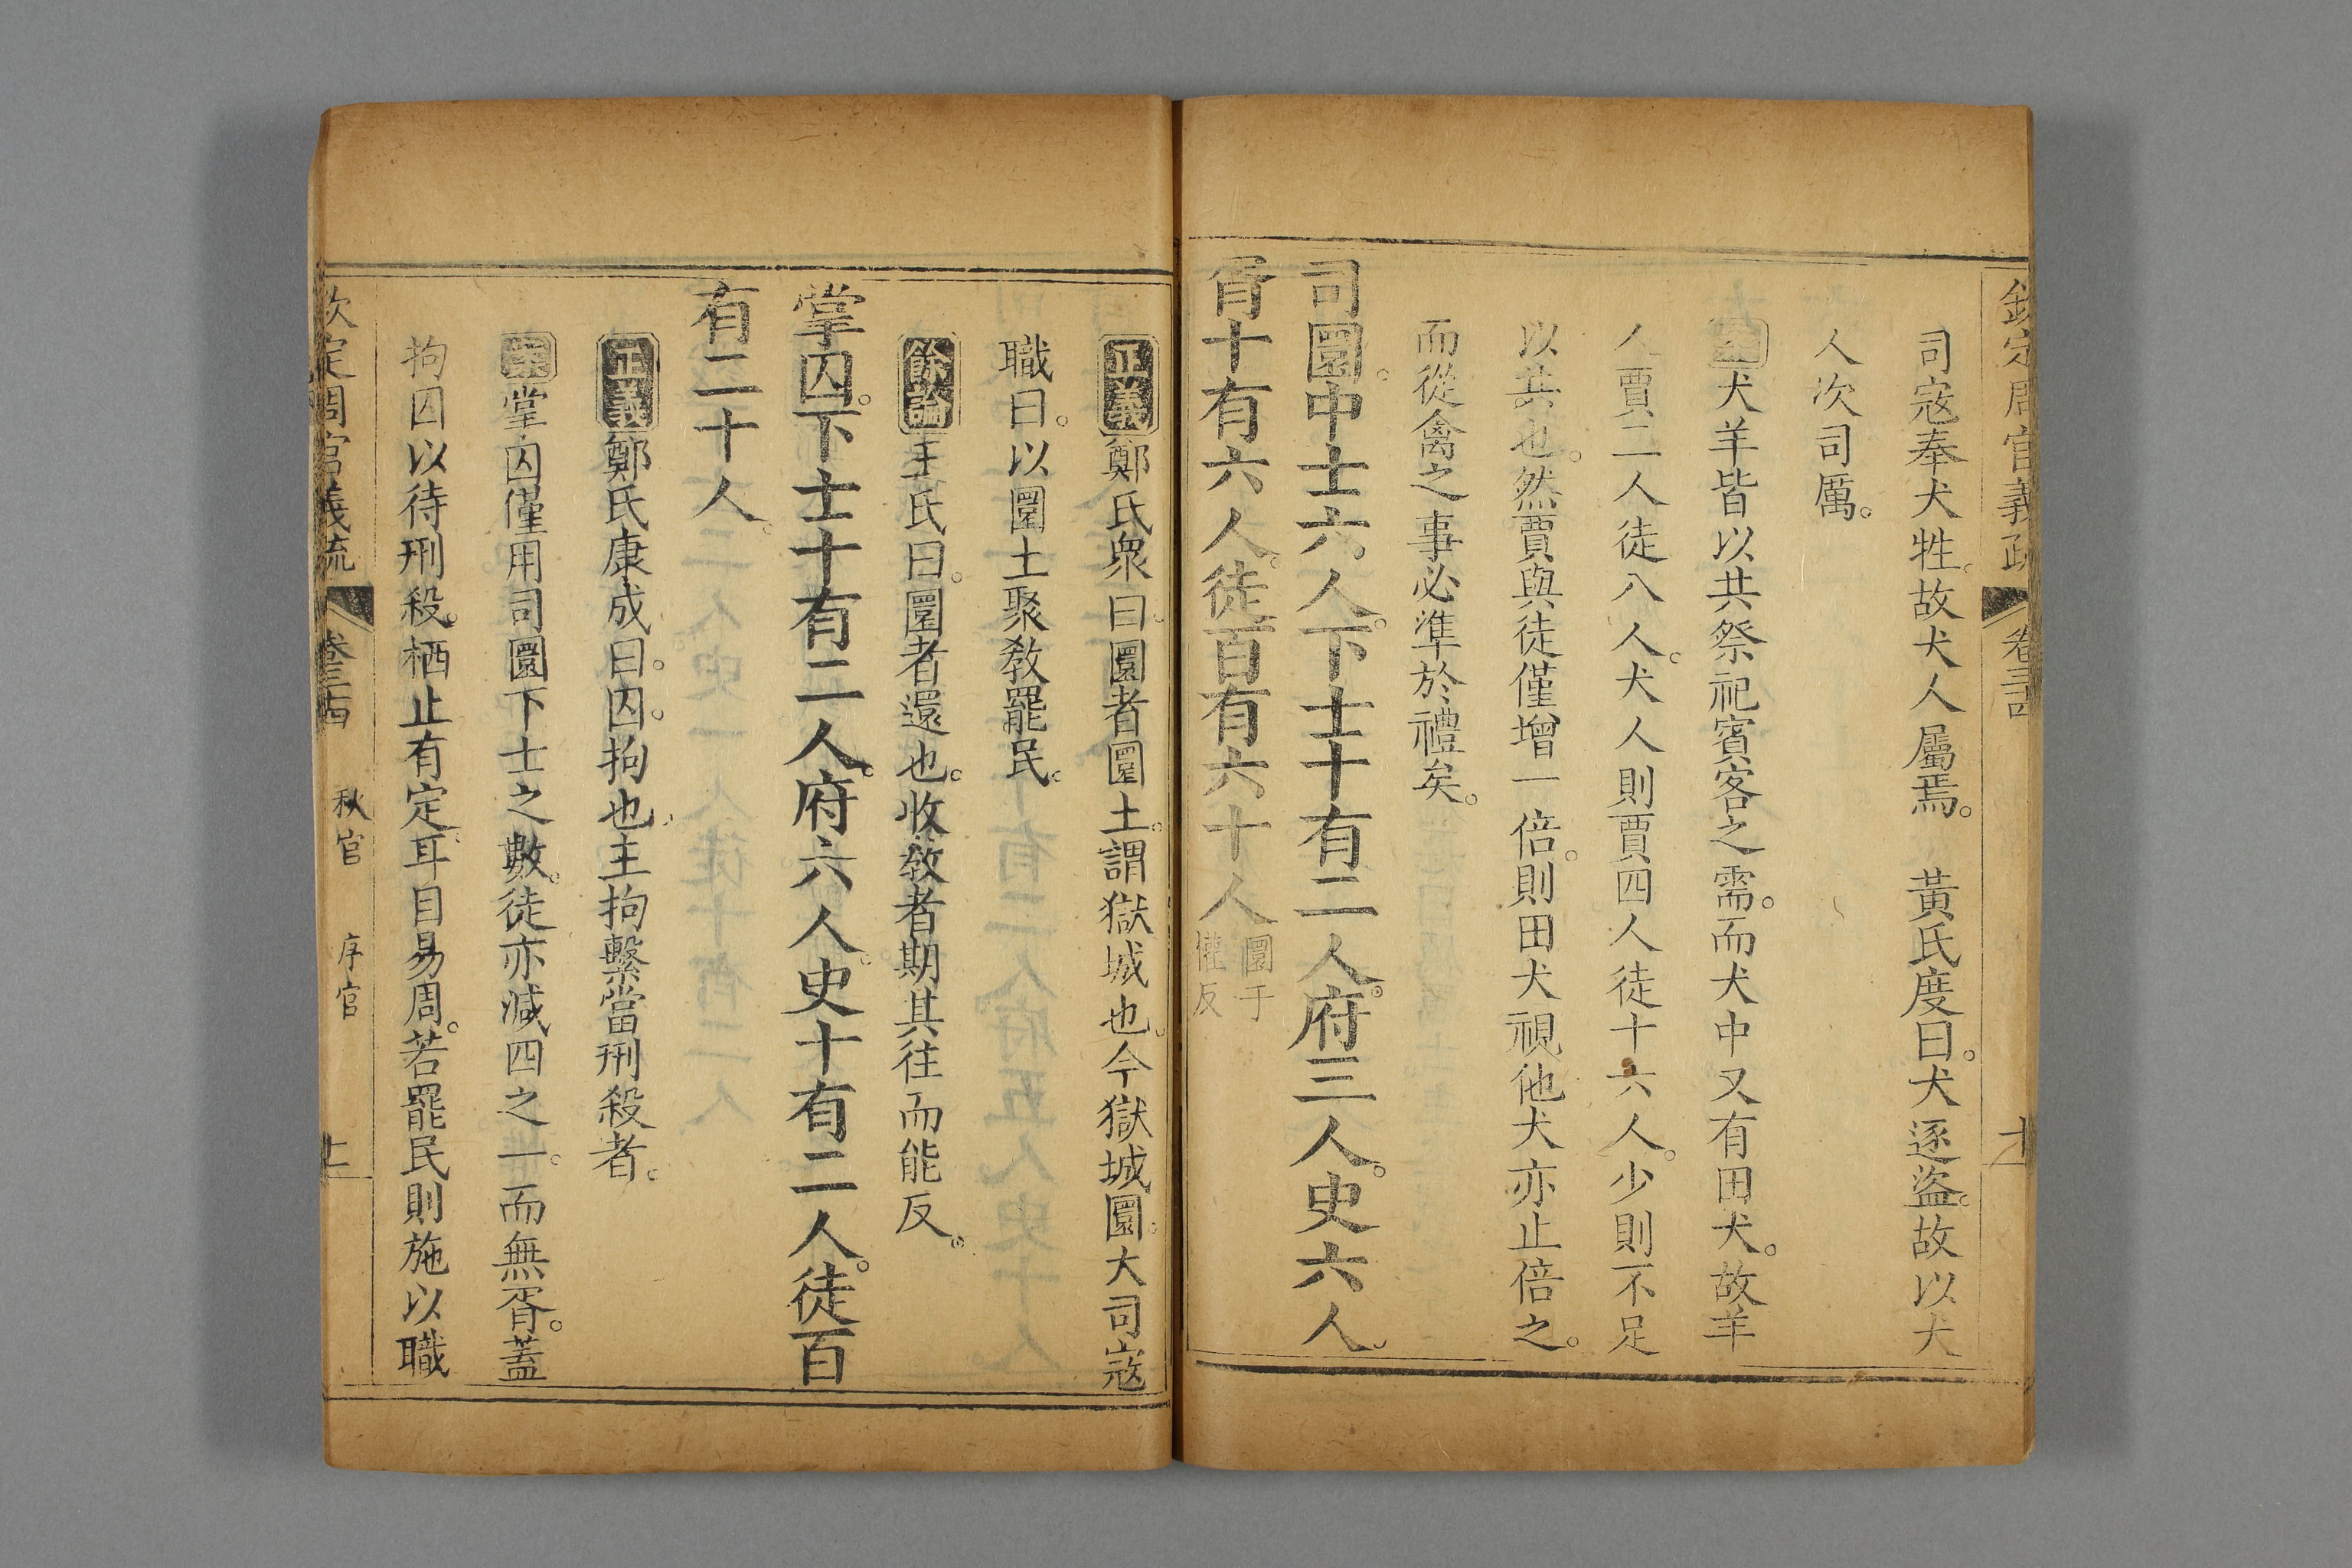 司寇奉犬牲故犬人屬焉。　黃氏度曰。犬逐盜。故以犬
人次司厲。
案犬羊皆以共祭祀賓客之需。而犬中又有田犬。故羊
人賈二人徒八人。犬人則賈四人徒十六人。少則不足
以共也。然賈與徒僅增一倍。則田犬視他犬亦止倍之。
而從禽之事必準於禮矣。
司圜。中士六人。下士十有二人。府三人。史六人。
胥十有六人。徒百有六十人
圜于
權反
正義鄭氏衆曰。圜者圜土。謂獄城也。今獄城圜。大司寇
職曰。以圜土聚敎罷民。
餘論王氏曰。圜者還也。收敎者期其往而能反。
掌囚。下士十有二人。府六人。史十有二人。徒百
有二十人。
正義鄭氏康成曰。囚。拘也。主拘繫當刑殺者。
案掌囚僅用司圜下士之數。徒亦減四之一。而無胥。蓋
拘囚以待刑殺。栖止有定。耳目易周。若罷民則施以職
欽定周官義疏　卷三十四　秋官　序官